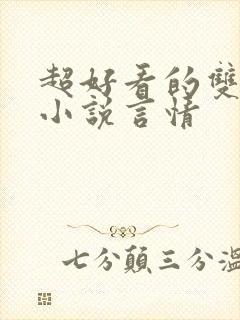 超好看的雙
小說言情
七分顛三分溫